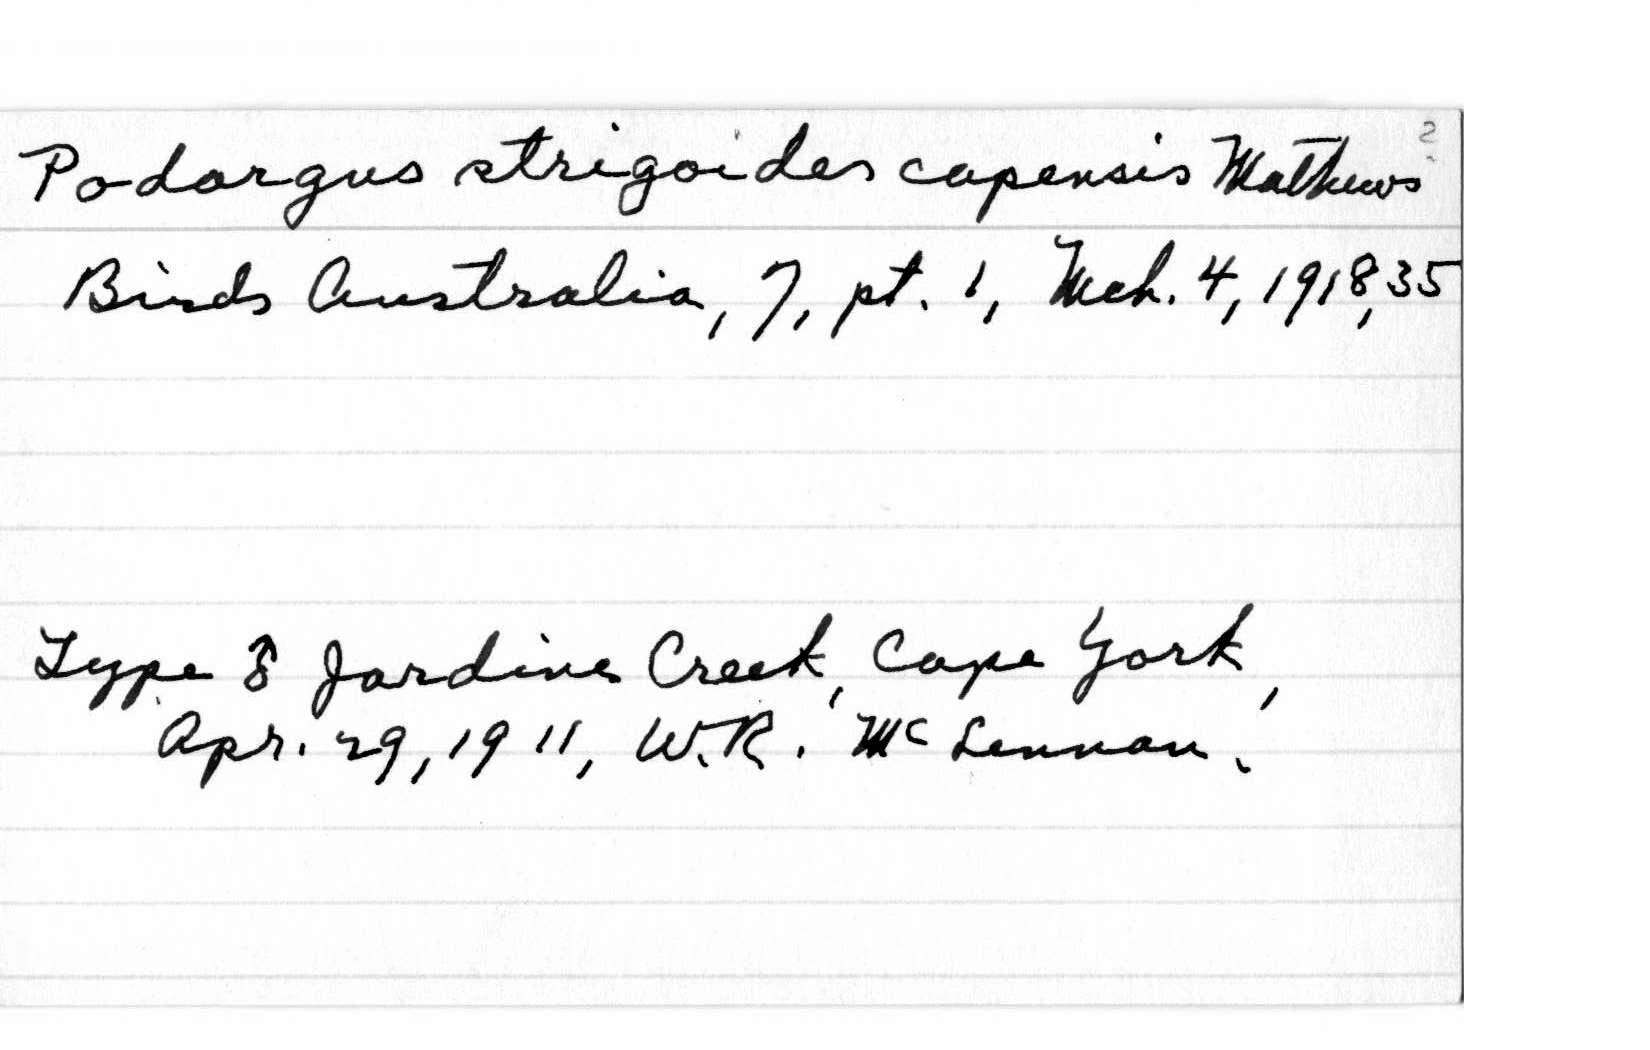 2
Podargus strigoides capensis Mathews
Birds Australia, 7, pt. 1, Mch. 4, 1918, 35
Type ♂ Jardine Creek, Cape York,
Apr. 29, 1911, W.R. McLennan.